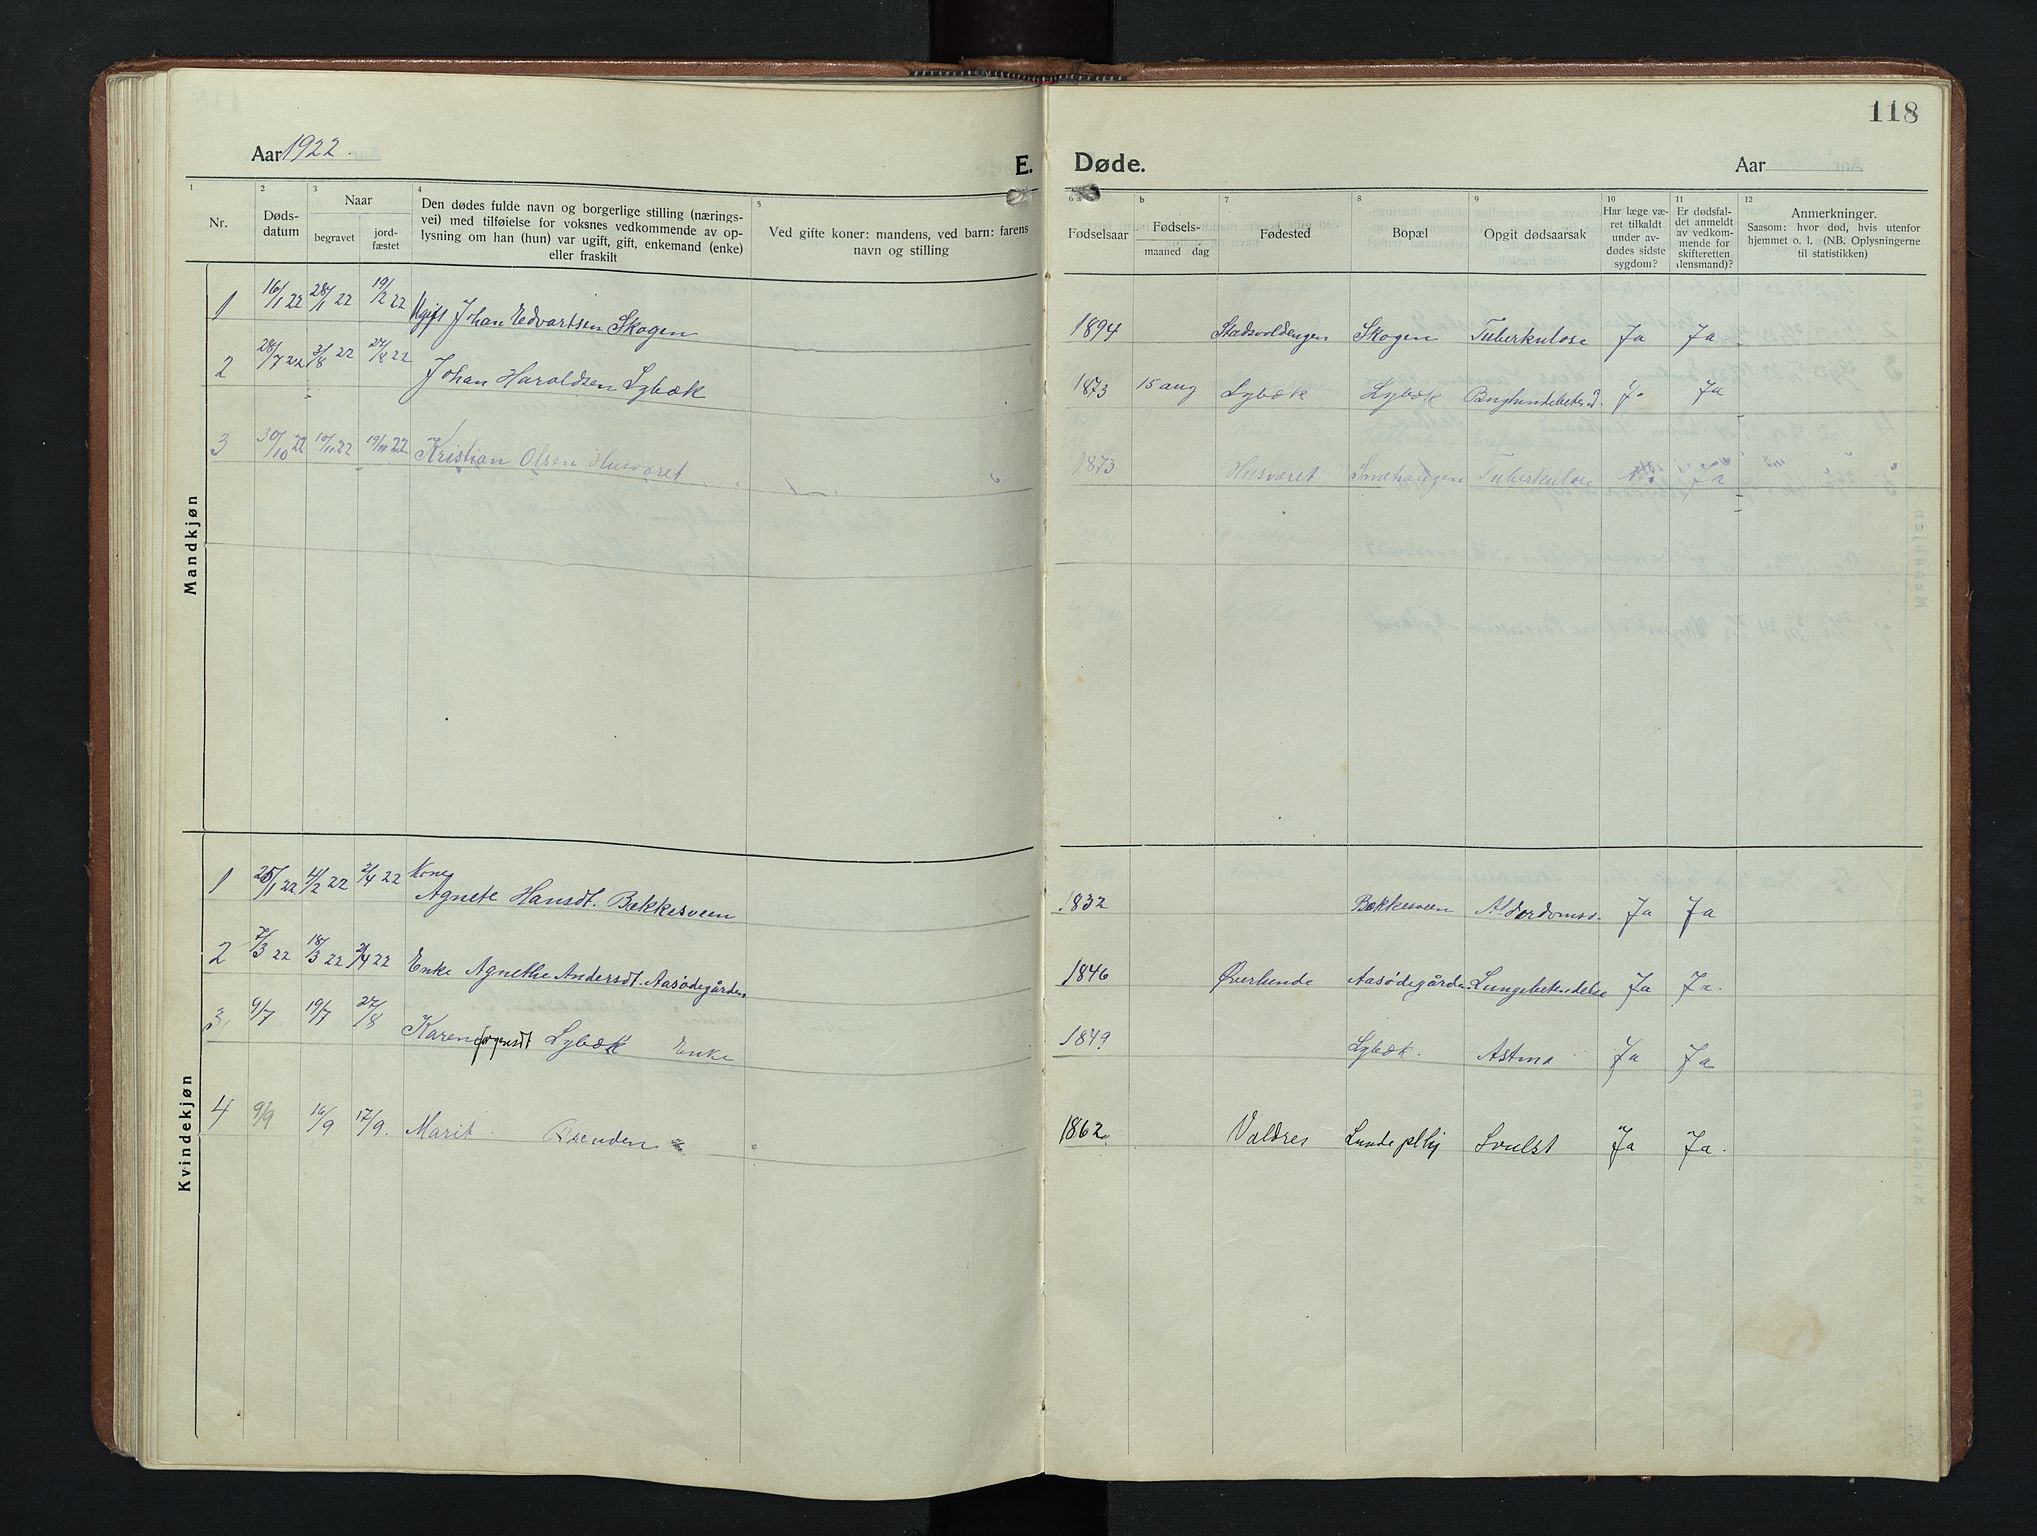 118
Aar 1922.
E. Døde.
Aar
1
2
3
4
5
6 a
b
7
8
9
10
11
12
Nr.
Døds-
datum
Naar
begravet
jord-
fæstet
Den dødes fulde navn og borgerlige stilling (nærings-
vei) med tilføielse for voksnes vedkommende av op-
lysning om han (hun) var ugift, gift, enkemand (enke)
eller fraskilt
Ved gifte koner: mandens, ved barn: farens
navn og stilling
Fødselsaar
Fødsels-
maaned dag
Fødested
Bopæl
Opgit dødsaarsak
Har læge væ-
ret tilkaldt
under av-
dødes sidste
sygdom?
Er dødsfal-
det anmeldt
av vedkom-
mende for
skifteretten
(lensmand)?
Anmerkninger.
Saasom: hvor død, hvis utenfor
hjemmet o. l. (NB. Oplysningerne
til statistikken)
Mandkjøn
1 16/1 22 28/1 22 19/2 22 Ugift Johan Edvartsen Skogen 1894 Skogen Tuberkulose Ja Ja.
2 28/7 22 3/8 22 27/8 22 Johan Haroldsen Lybæk 1873 15 aug Lybæk Lybæk Ja Ja
3 30/10 22 10/11 22 19/11 22 Kristian Olsen Husværet 1873 Husværet Smehaugen Tuberkulose Ja
Kvindekjøn
1 25/1 22 4/2 22 2/4 22 Kone Agnete Hansdt. Bækkesveen 1832 Bækkesveen Alderdomss. Ja Ja
2 7/3 22 18/3 22 2/4 22 Enke Agnethe Andersdt. Aasødegården 1846 Øverlunde Aasødegården Lungebetendelse Ja Ja.
3 9/7 19/7 27/8 Karen Jørgensdt Lybæk Enke 1849 Lybæk. Astma Ja Ja
4 9/9 16/9 17/9. Marit Brenden 1862 Valdres Lunde plhj Svulst Ja Ja.